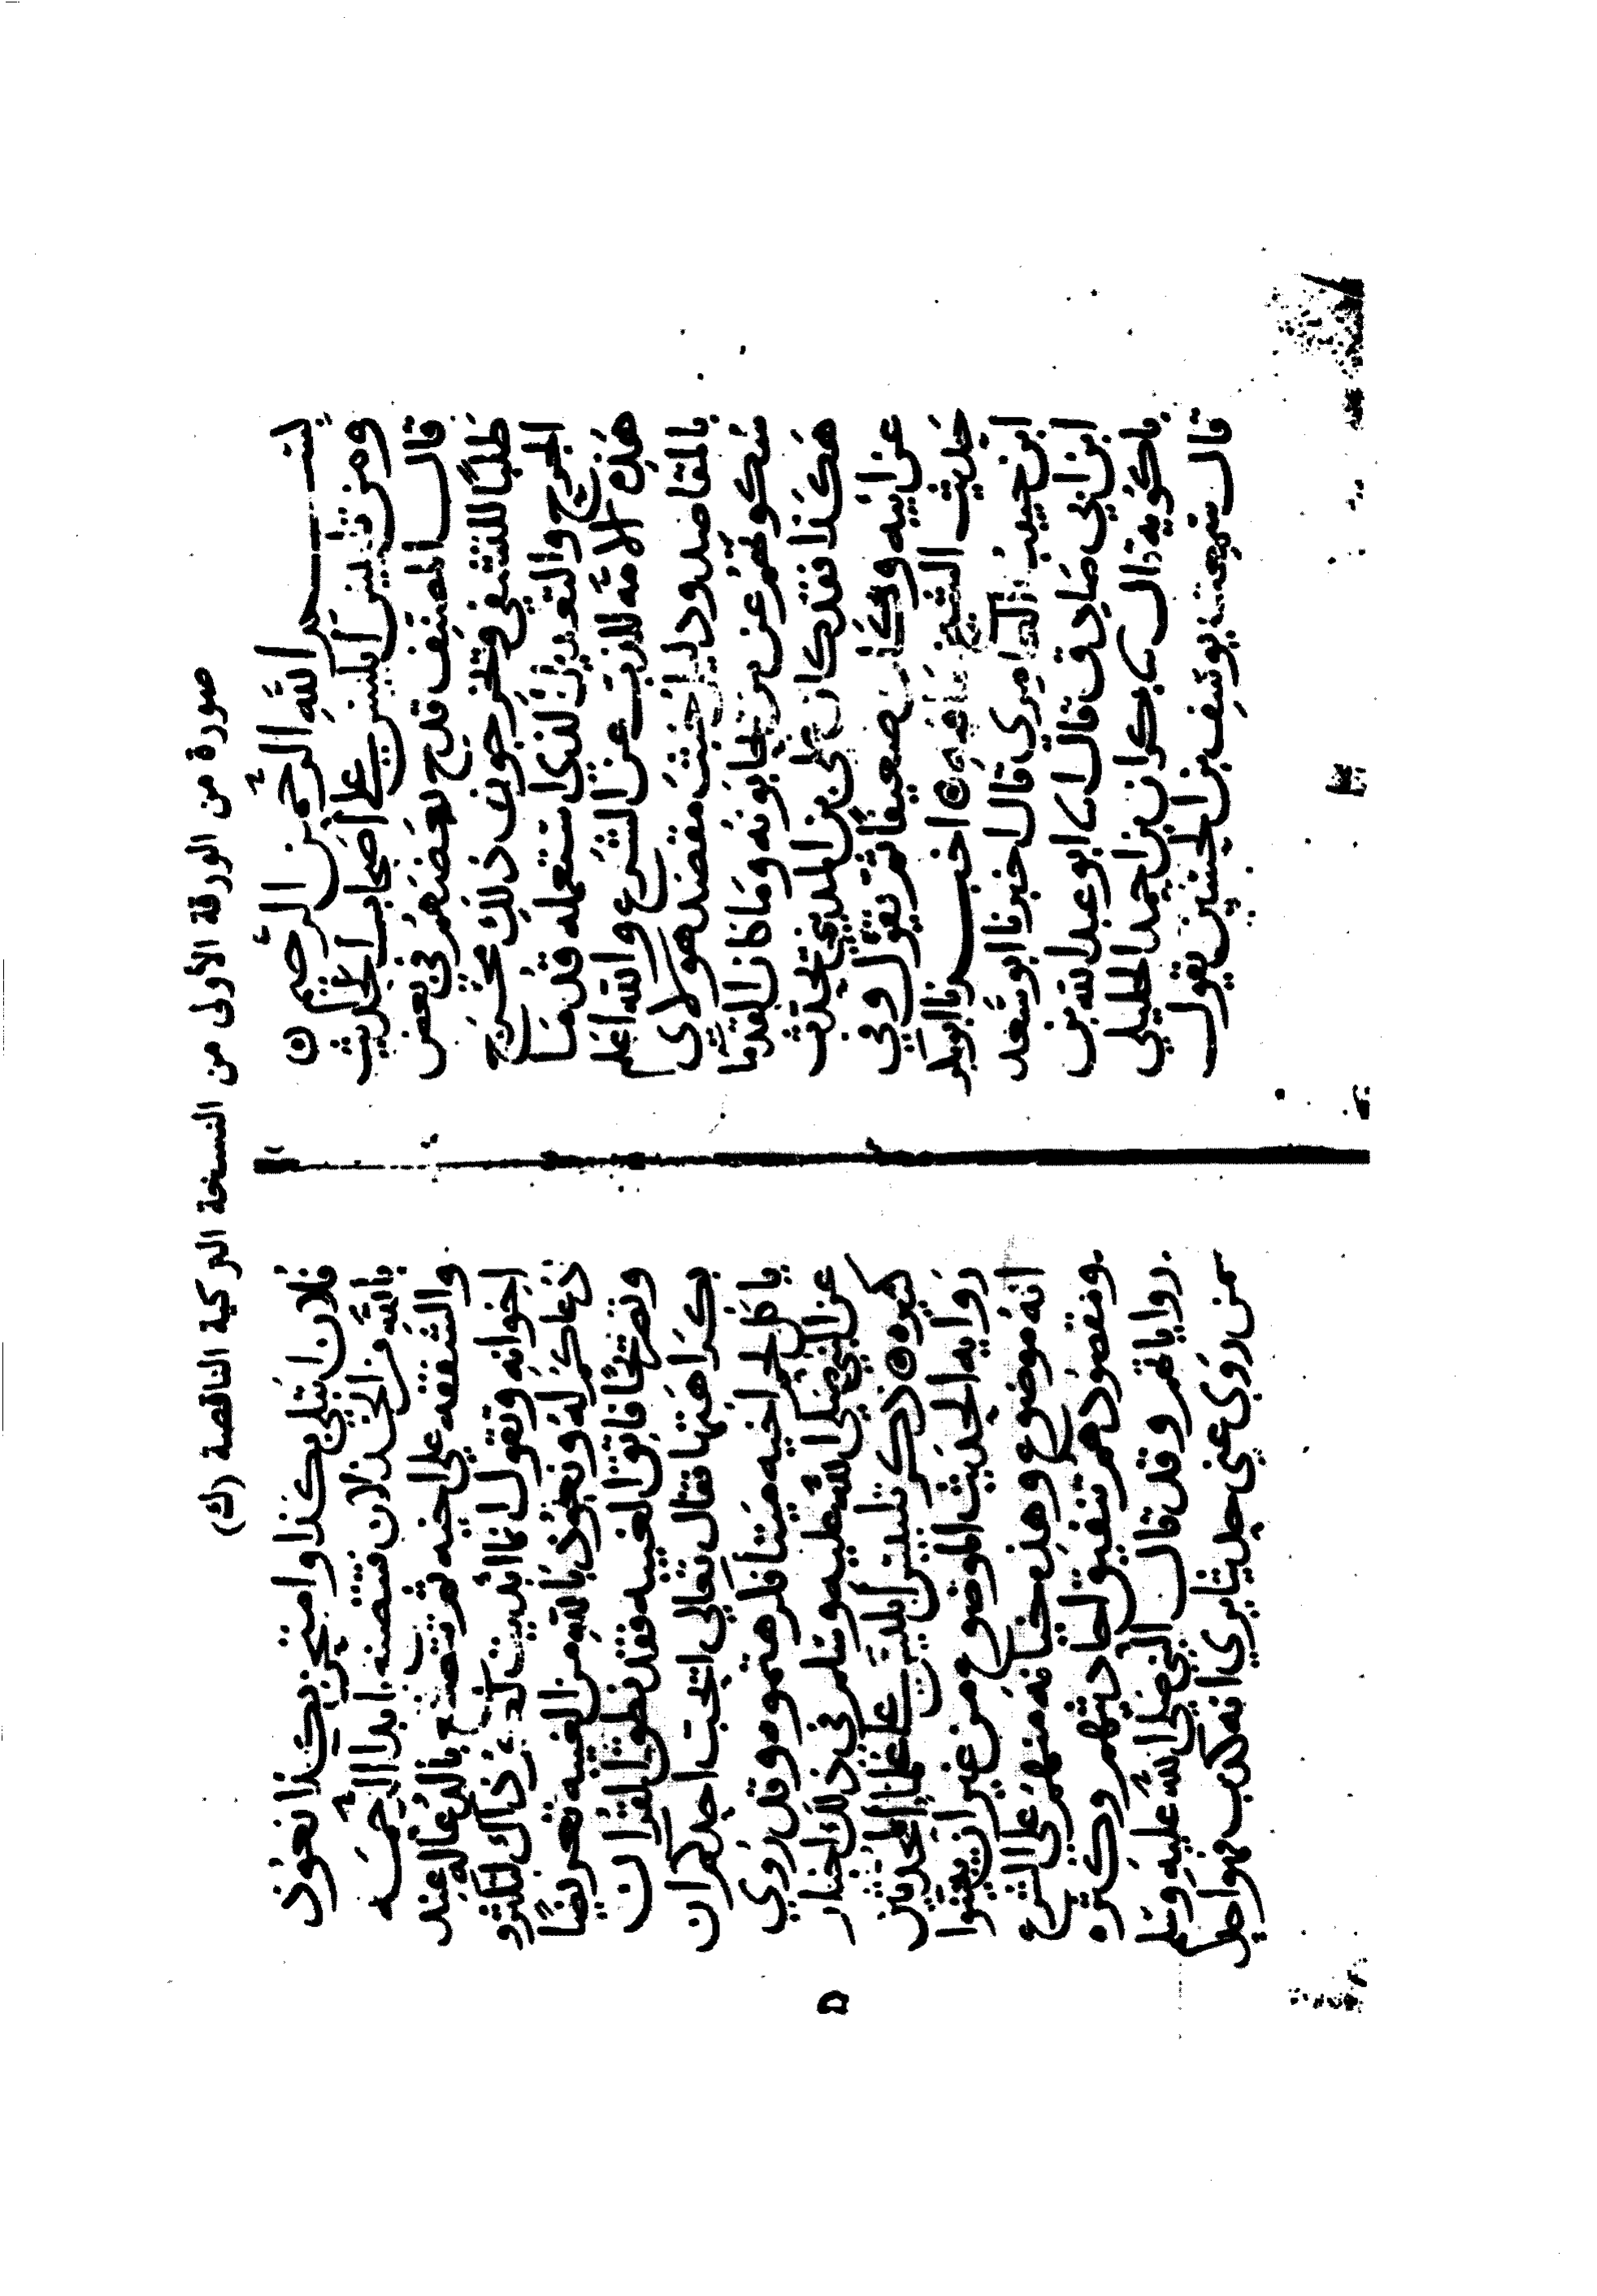 صورة من الورقة الأولى من النسخة التركية الناقصة (ك)
بسم الله الرحمن الرحيم
ومن تلبيس ابليس على أصحاب الحديث
قال المصنف قدح بعضهم في بعض
طلبا للتشفي ويخرجون ذلك مخرج
الجرح والتعديل الذي استعمله قدما
هذه الامة للذب عن الشرع والله اعلم
بالمقاصد ودليل خبث مقصد هولاي
سكوتهم عن من اخذوا عنه وما كان القدما
هكذا فقد كان علي بن المديني يحدث
عن ابيه وكان ضعيفا ثم يقول وفي
حديث الشيخ ما فيه ٥ اخبرنا ابو بكر
ابن حبيب العامري قال اخبرنا ابو سعد
ابن ابي صادق قال ابا ابو عبد الله بن
باكويه قال با بكران بن احمد الجيلي
قال سمعت يوسف بن الحسين يقول
فلان ابتلي بكذا وامتحن بكذا نعوذ
بالله من الخذلان فتضمنه ابدا الرحمه
والشفقه على اخيه ثم يتصنع بالدعا له عند
اخوانه ويقول انما ابديت لكم ذاك لتكثروا
دعاكم له ونعوذ بالله من الغيبه تعريضا
وتصريحا فاتق الغيبه فقد نطق القران
بكراهتها فقال تعالى ايحب احدكم ان
ياكل لحم اخيه ميتا فكرهتموه وقد روي
عن النبي صلى الله عليه وسلم في ذلك اخبار
كثيره ٥ ذكر تلبيس ابليس على علما المحدثين
روايه الحديث الموضوع من غير ان يبينوا
انه موضوع وهذه خيانه منهم على الشرع
ومقصودهم تنفيق احاديثهم وكثره
رواياتهم وقد قال النبي صلى الله عليه وسلم
من روى عني حديثا يرى انه كذب فهو احد